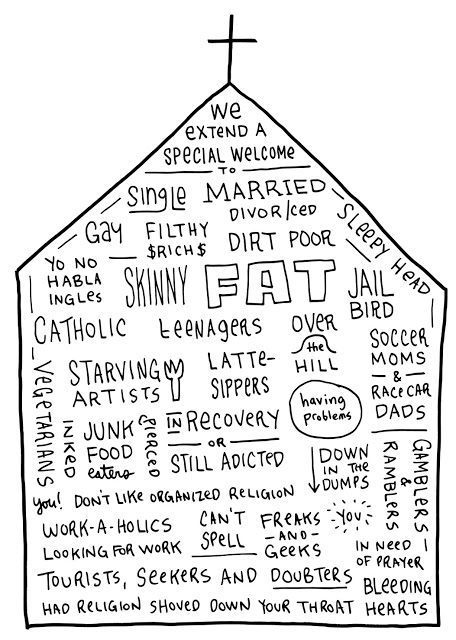 We
EXTEND A
SPECIAL WELCOME
TO
SINGLE MARRIED
DIVOR/CED
SLEEPY HEAD
GAY FILTHY
$RICH$
DIRT POOR
YO NO
HABLA
INGLeS
SKINNY
FAT
JAIL
BIRD
CATHOLIC
teenAGERS
OVER
the
HILL
SOCCER
MOMS
&
RACE CAR
DADS
VEGETARIANS
STARVING
ARTISTS
LATTE-
SIPPERS
having
problems
INKED
JUNK
FOOD
eaters
PIERCED
IN RECOVERY
OR
STILL ADICTED
DOWN
IN THE
DUMPS
GAMBLERS
&
RAMBLERS
you! DON'T LIKE ORGANIZED RELIGION
WORK-A-HOLICS
LOOKING FOR WORK
CAN'T
SPELL
FREAKS
-AND-
GEEKS
YOU
IN NEED
OF PRAYER
TOURISTS, SEEKERS AND DOUBTERS
BLEEDING
HEARTS
HAD RELIGION SHOVED DOWN YOUR THROAT